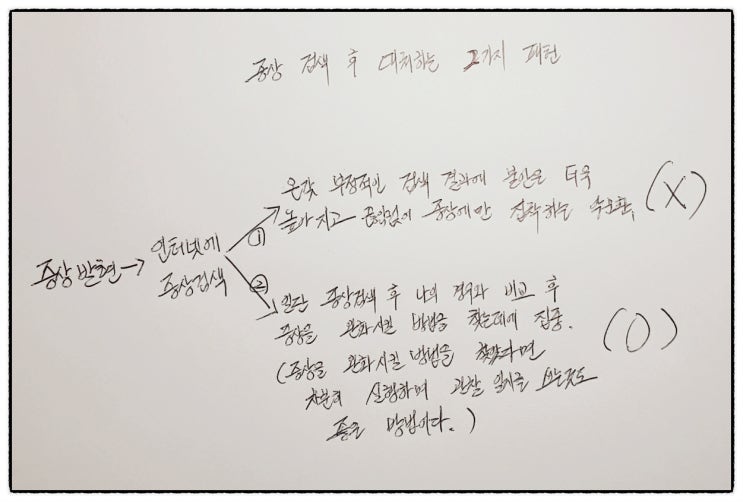 증상 검색 후 대처하는 2가지 패턴
온갖 부정적인 검색 결과에 불안은 더욱
높아지고 끊임없이 증상에만 집착하는 악순환. (X)
①
증상발현 → 인터넷에
증상검색
②
일단 증상검색 후 나의 경우와 비교 후
증상을 완화시킬 방법을 찾는데에 집중.
(O)
(증상을 완화시킬 방법을 찾았다면
차분히 실행하며 관찰 일지를 쓰는것도
좋은 방법이다.)